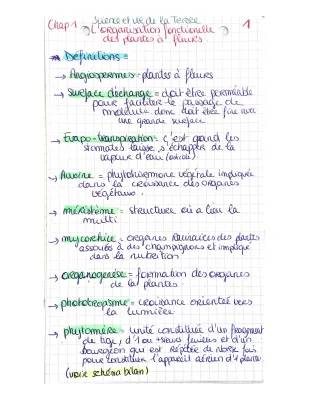 Science et vie de la Terre
Chap 1 → L'organisation fonctionelle 1
des plantes à fleurs.
Définitions =
→ Angiospermes = plantes à fleurs
→ Surface d'échange = doit être perméable
pour faciliter le passage de
molécule donc doit être fine avec
une grande surface
→ Evapo-transpiration = c'est quand les
stomates laisse s'échapper de la
vapeur d'eau
→ Auxine = phytohormone végétale impliquée
dans la croissance des organes
végétaux.
→ méristème = structure où a lieu la
multi
→ mycorhize = organes des plantes
associés à des champignons et impliqué
dans la nutrition.
→ organogenèse = formation des organes
de la plantes.
→ phototropisme = croissance orientée vers
la lumière
→ phytomère = unité constituée d'un fragment
de tige, d'1 ou +sieurs feuilles et d'un
bourgeon qui est répétée de nbrse fois
pour constituer l'appareil aérien d'1 plante
(voir schéma bilan)